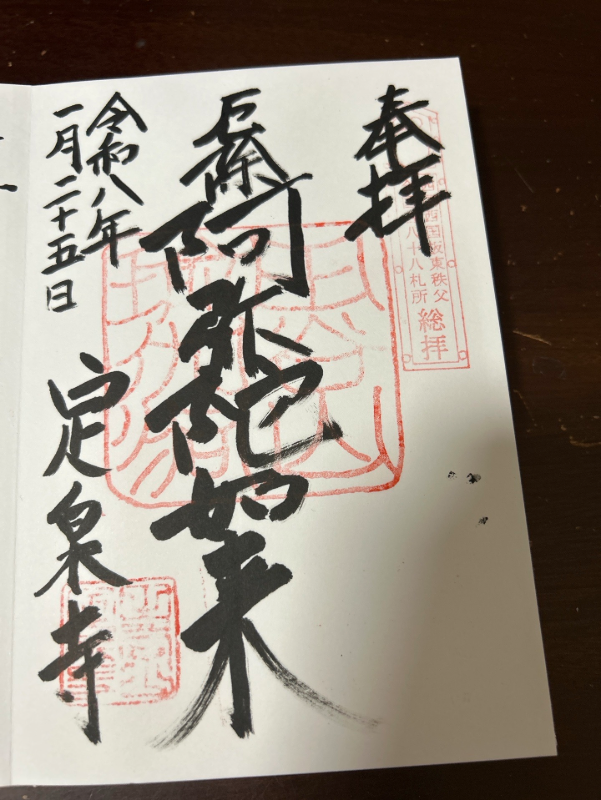 奉拝
西国坂東秩父
八十八札所
総拝
阿弥陀如来
令和八年
一月二十五日
定泉寺